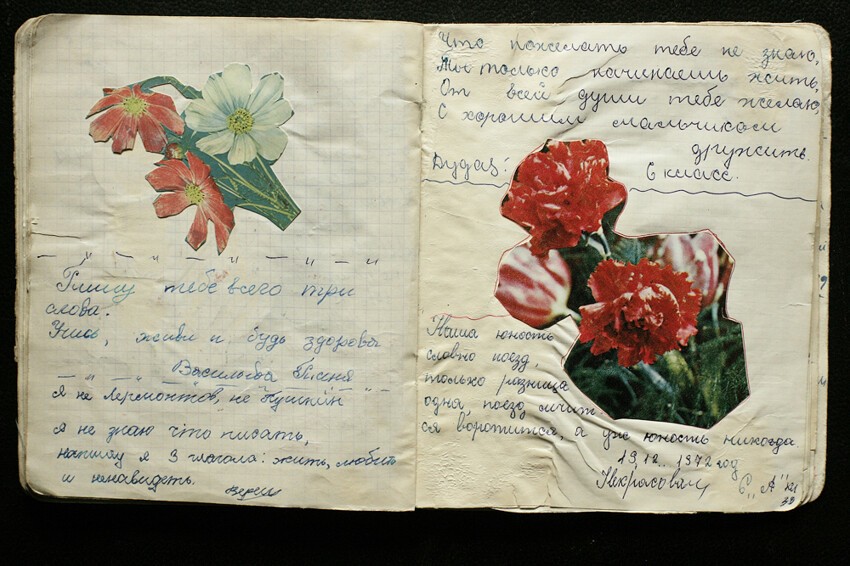 Пишу тебе всего три
слова.
Учись, живи и будь здорова
Васильева
я не Лермонтов, не Пушкин
я не знаю что писать,
напишу я 3 глагола: жить, любить
и ненавидеть.
Что пожелать тебе не знаю,
Ты только начинаешь жить,
От всей души тебе желаю,
С хорошим мальчиком
дружить.
6 класс.
Наша юность
словно поезд,
только разница
одна поезд мчит
ся воротится, а уж юность никогда.
19.12. 1972 год
6 "А" кл